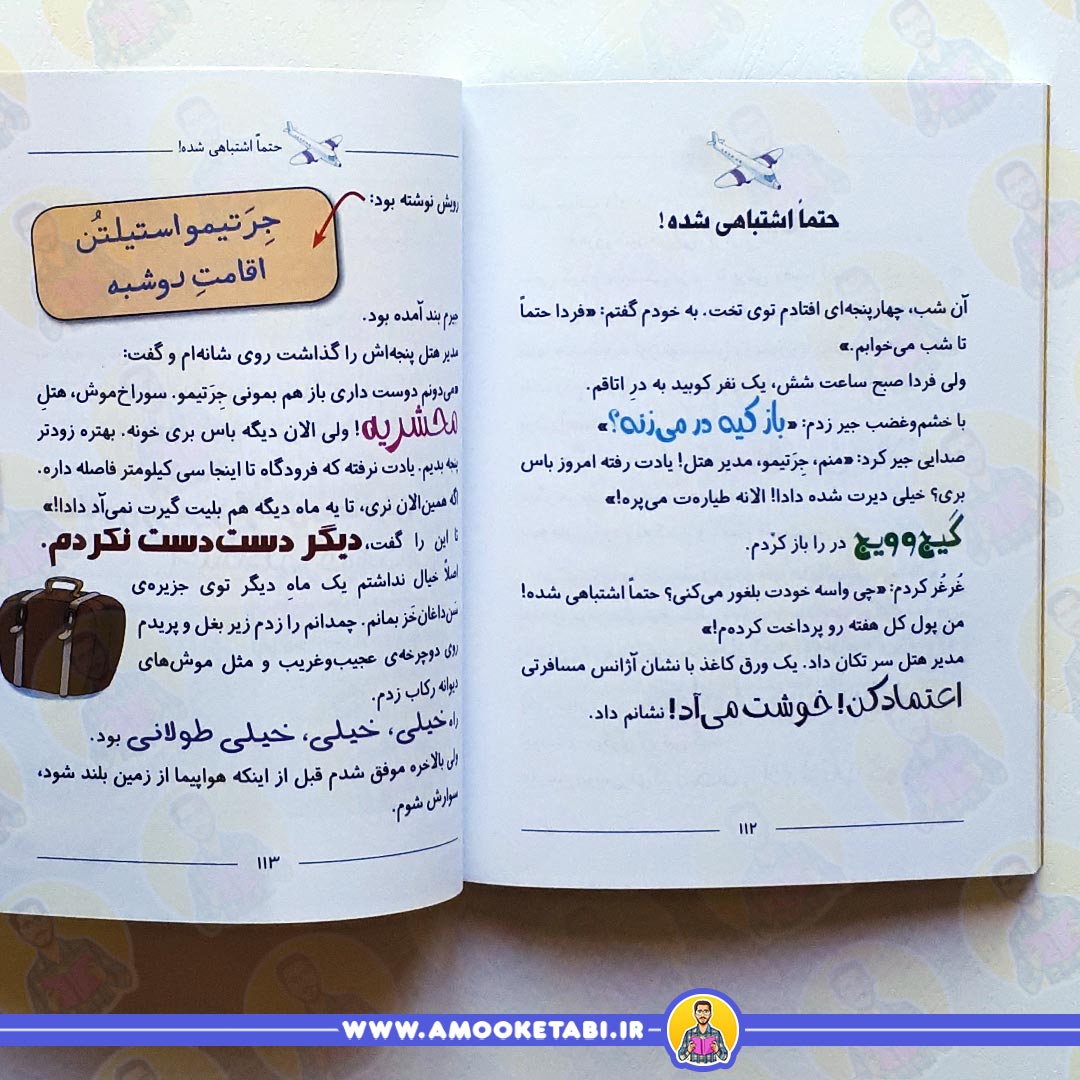 حتماً اشتباهی شده!
آن شب، چهارپنجه‌ای افتادم توی تخت. به خودم گفتم: «فردا حتماً
تا شب می‌خوابم.»
ولی فردا صبح ساعت شش، یک نفر کوبید به درِ اتاقم.
با خشم‌وغضب جیر زدم: «باز کیه در می‌زنه؟»
صدایی جیر کرد: «منم، جِرَتیمو، مدیر هتل! یادت رفته امروز باس
بری؟ خیلی دیرت شده دادا! الانه طیاره‌ت می‌پره!»
گیج‌وویج در را باز کردم.
غُرغُر کردم: «چی واسه خودت بلغور می‌کنی؟ حتماً اشتباهی شده!
من پول کل هفته رو پرداخت کرده‌م!»
مدیر هتل سر تکان داد. یک ورق کاغذ با نشان آژانس مسافرتی
اعتماد کن! خوشت می‌آد! نشانم داد.
۱۱۲
حتماً اشتباهی شده!
رویش نوشته بود:
جِرَتیمو استیلتُن
اقامتِ دوشبه
جیرم بند آمده بود.
مدیر هتل پنجه‌اش را گذاشت روی شانه‌ام و گفت:
«می‌دونم دوست داری باز هم بمونی جِرَتیمو. سوراخ‌موش، هتلِ
محشریه! ولی الان دیگه باس بری خونه. بهتره زودتر
پنجه بدیم. یادت نرفته که فرودگاه تا اینجا سی کیلومتر فاصله داره.
اگه همین‌الان نری، تا یه ماه دیگه هم بلیت گیرت نمی‌آد دادا!»
تا این را گفت، دیگر دست‌دست نکردم.
اصلاً خیال نداشتم یک ماهِ دیگر توی جزیره‌ی
سَن‌داغان‌خَز بمانم. چمدانم را زدم زیر بغل و پریدم
روی دوچرخه‌ی عجیب‌وغریب و مثل موش‌های
دیوانه رکاب زدم.
راه خیلی، خیلی، خیلی طولانی بود.
ولی بالاخره موفق شدم قبل از اینکه هواپیما از زمین بلند شود،
سوارش شوم.
۱۱۳
WWW.AMOOKETABI.IR